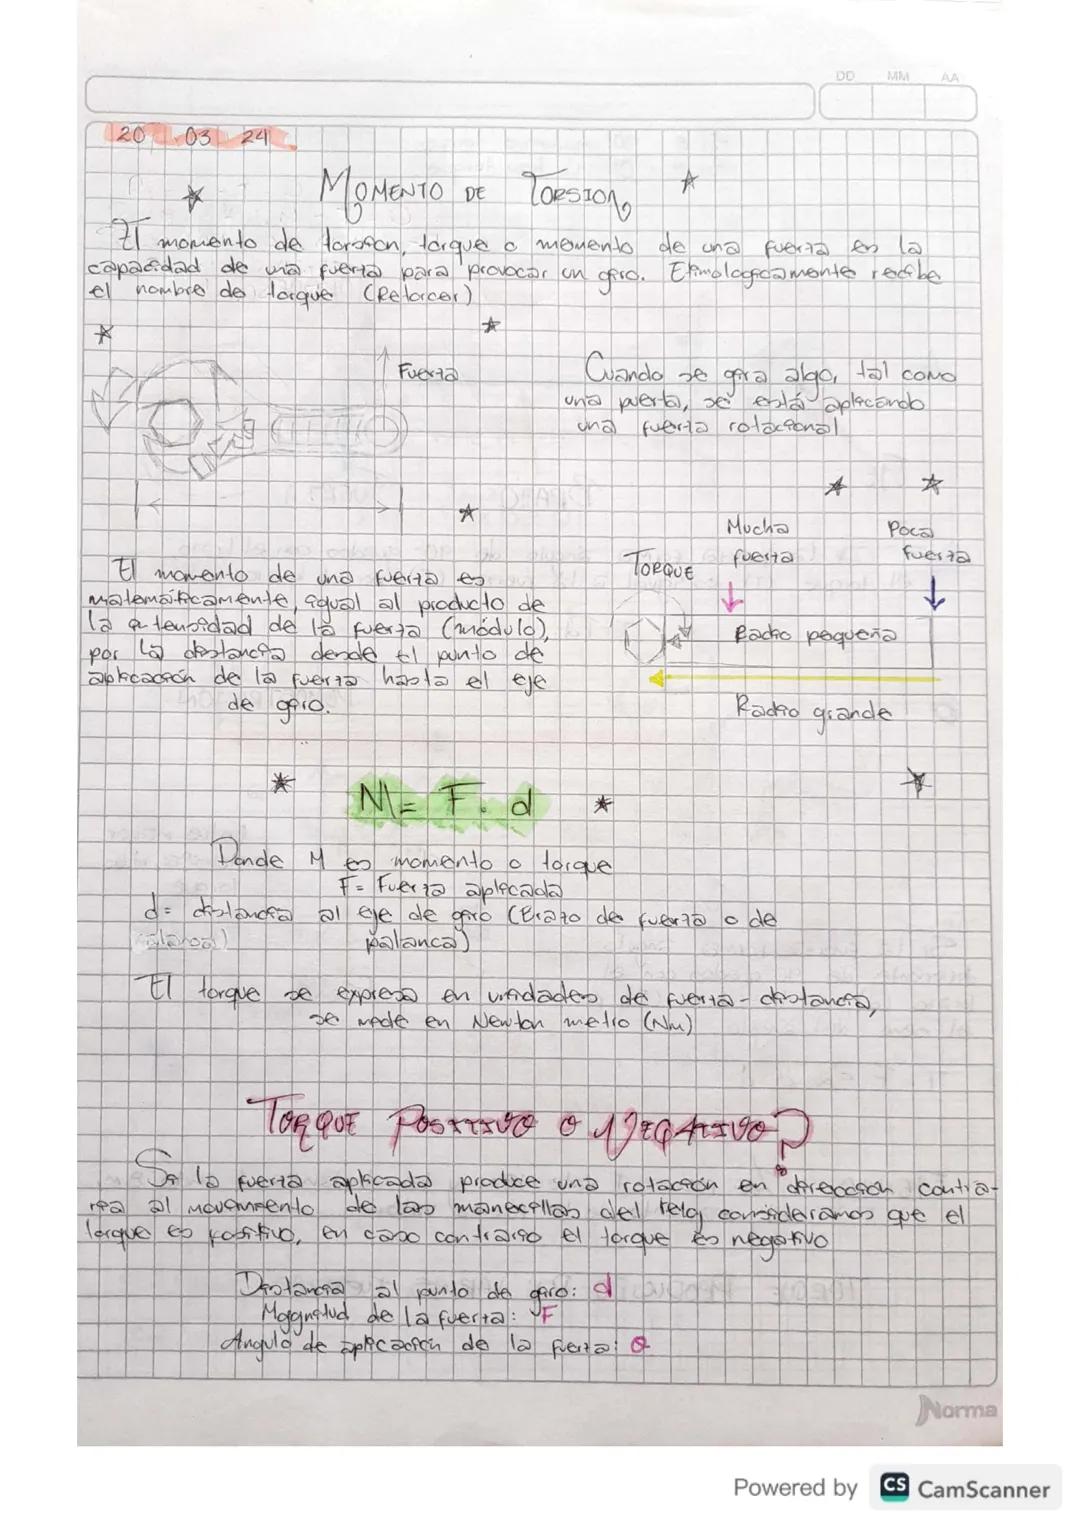 DD MM AA
20 03 24
MOMENTO DE TORSION
El momento de torsion, torque o momento de una fuerza es la
capacidad de una fuerza para provocar un giro. Etimologicamente recibe
el nombre de torque (Retorcer)
Fuerza
Cuando se gira algo, tal como
una puerta, se está aplicando
una fuerza rotacional
Mucha
fuerza
Poca
fuerza
TORQUE
Radio pequeño
Radio grande
El momento de una fuerza es
matemáticamente, igual al producto de
la intensidad de la fuerza (módulo),
por la distancia desde el punto de
aplicación de la fuerza hasta el eje
de giro.
M = F. d
Donde M es momento o torque
F= Fuerza aplicada
d= distancia al eje de giro (Brazo de fuerza o de
palanca)
El torque se expresa en unidades de fuerza - distancia,
se mide en Newton metro (Nm)
TORQUE POSITIVO O NEGATIVO?
Si la fuerza aplicada produce una rotación en dirección contra-
ria al movimiento de las manecillas del reloj consideramos que el
torque es positivo, en caso contrario el torque es negativo
Distancia al punto de giro: d
Magnitud de la fuerza: F
Angulo de aplicación de la fuerza: θ
Norma
Powered by CS CamScanner